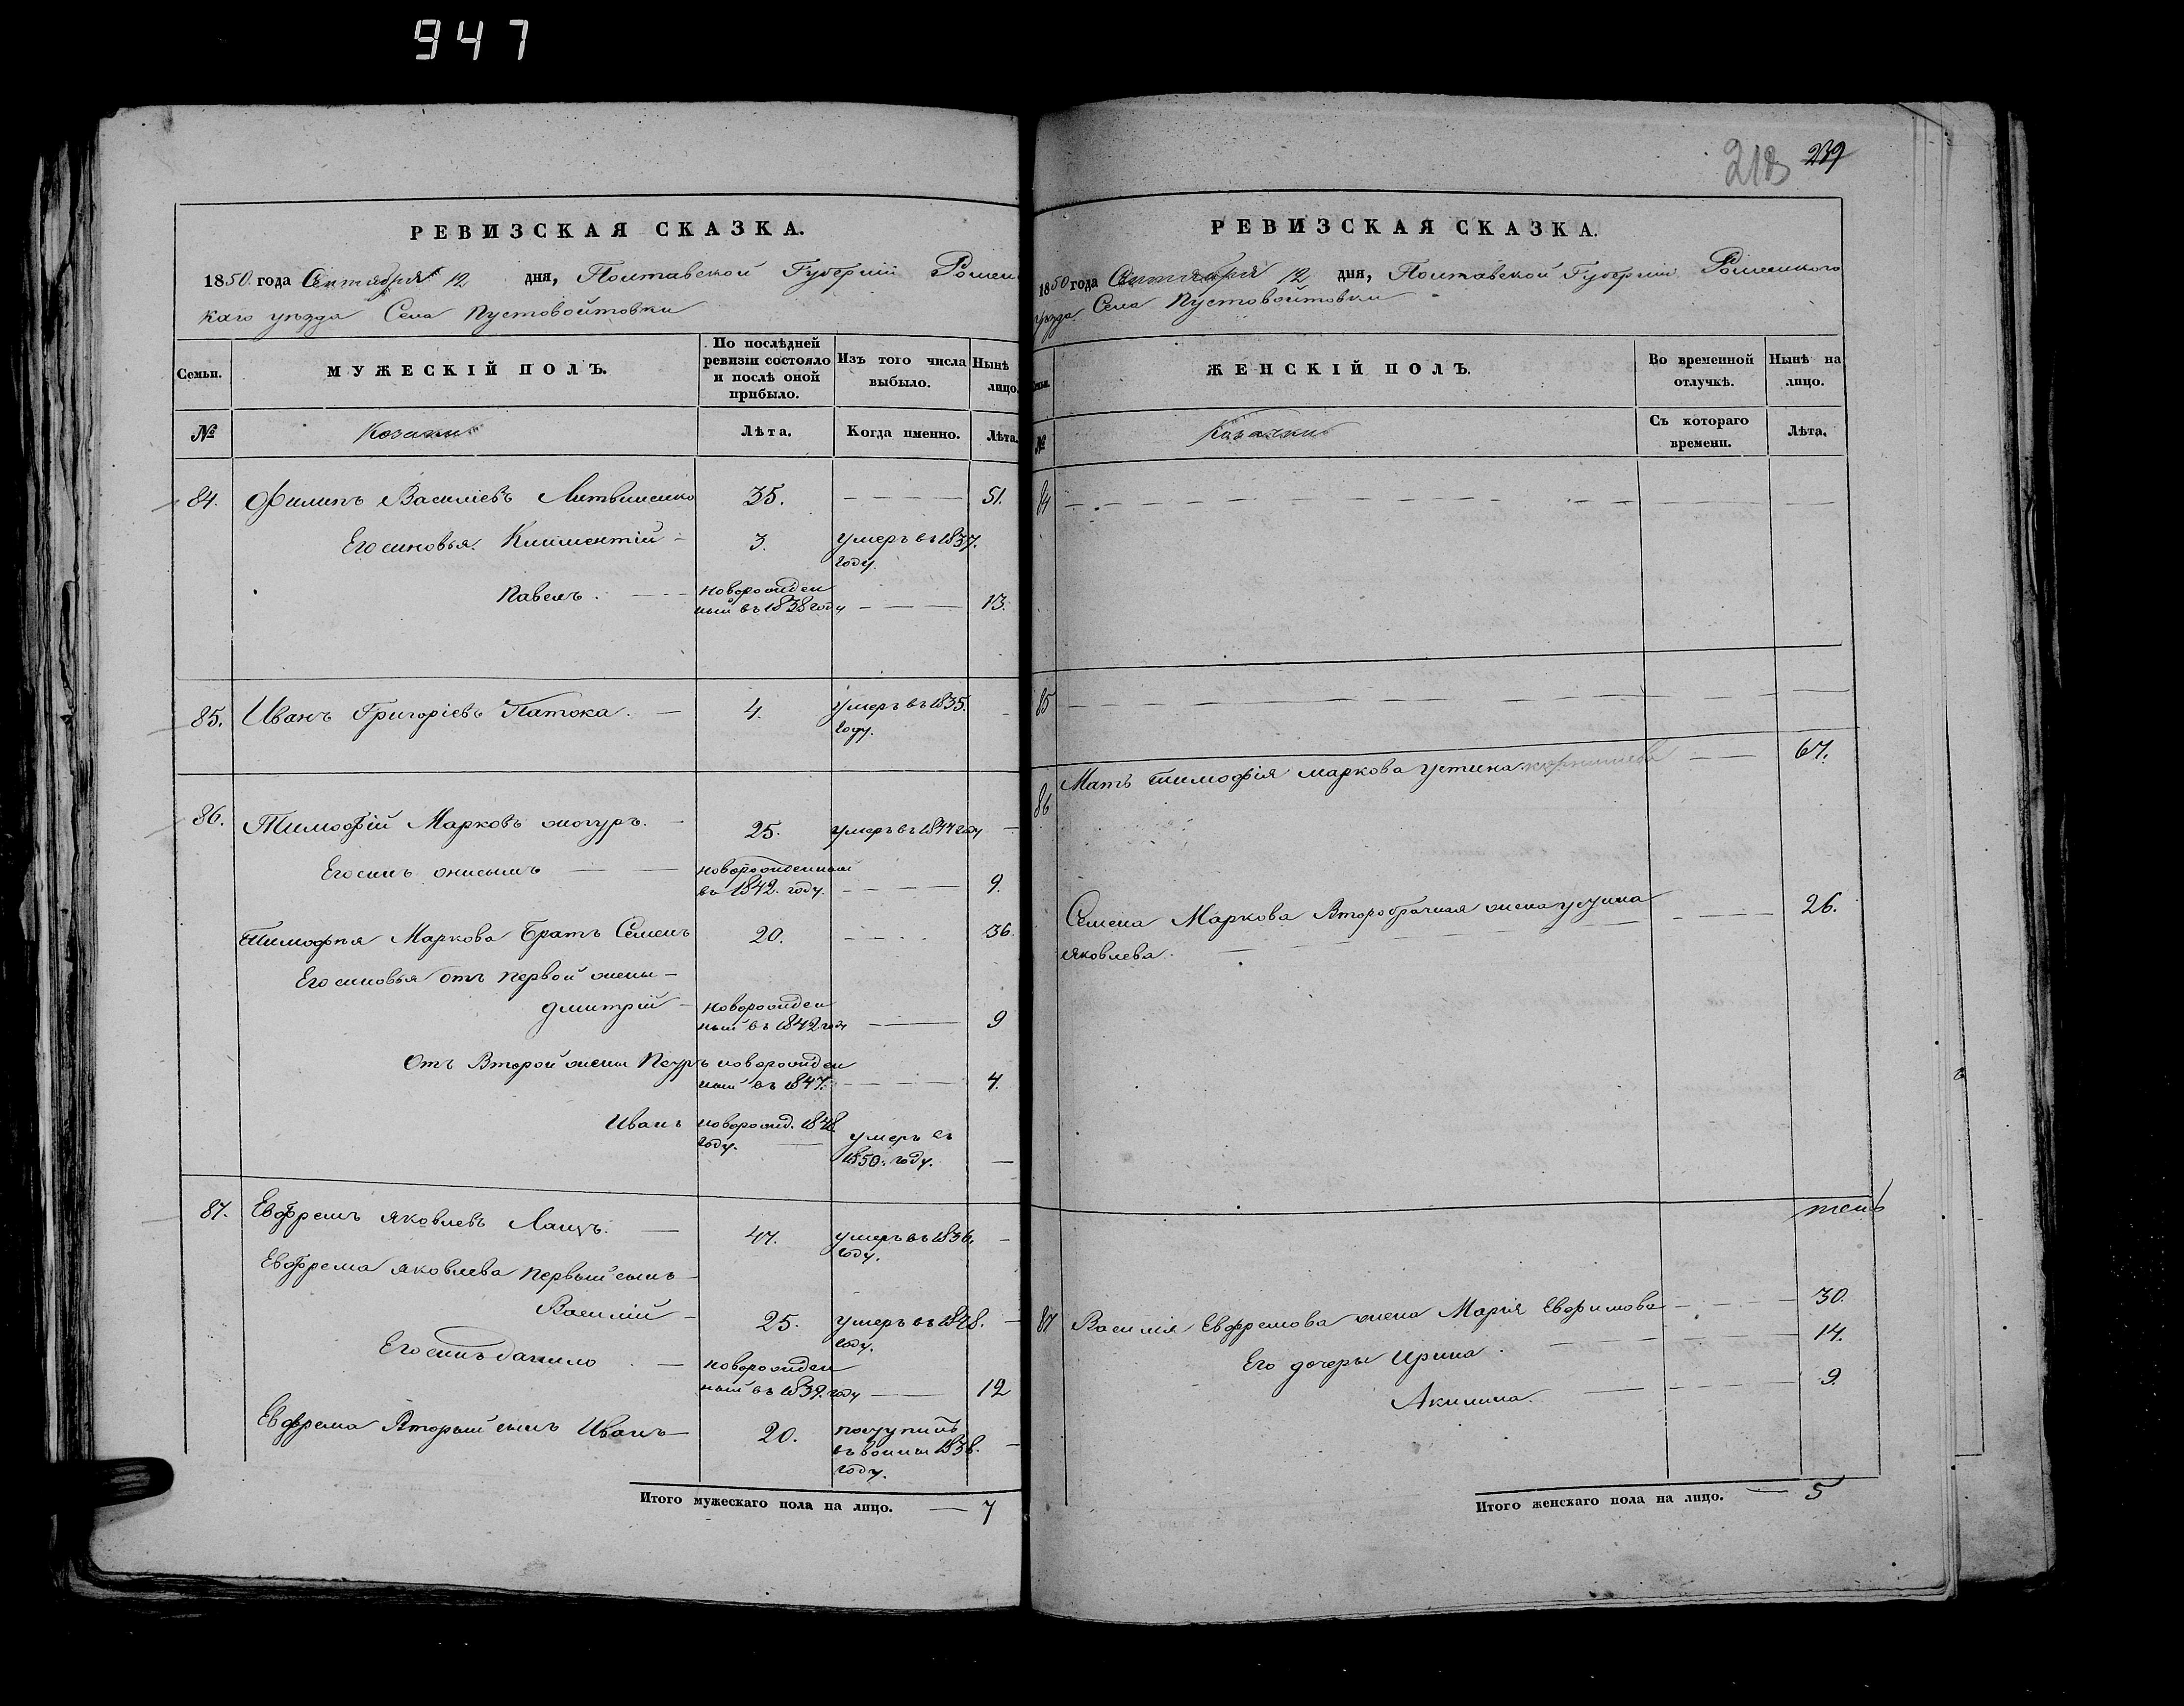 947
РЕВИЗСКАЯ СКАЗКА.
1850 года Сентября 12 дня, Полтавской Губерніи Ромен
каго уѣзда Села Пустовойтовки
Семьи.
МУЖЕСКІЙ ПОЛЪ.
По послѣдней
ревизіи состояло
и послѣ оной
прибыло.
Изъ того числа
выбыло.
Нынѣ
лицо.
№
Козаки
Лѣта.
Когда именно.
Лѣта.
84. Филипъ Василіевъ Литвиненко 35. — — — — 51.
Его синовья. Климентій - 3. умеръ въ 1837.
году.
Павелъ. - — — новорожден
ный въ 1838 году — — — 13.
85. Иванъ Григоріевъ Патока. — 4. умеръ въ 1835. -
году.
86. Тимофій Марковъ 25. умеръ въ 1844 году —
Его синъ онисымъ — — новорожденный
въ 1842. году. - — - — 9.
Тимофѣя Маркова Братъ Семенъ 20. - — - - 36.
Его синовья отъ первой жены —
дмитрій - новорожден
ный въ 1842 год - —— 9
Отъ Второй жены Петръ новорожден
ный въ 1847. - — - — 4.
Иванъ новорожд. 1848.
году. — умеръ въ
1850. году. —
87. Евфремъ Яковлевъ — 47. умеръ въ 1836. -
году.
Евфрема Яковлева первый сынъ -
Василій - 25. умеръ въ 1848. —
году.
Его синъ данило . — новорожден
ный въ 1839. году —— 12
Евфрема Вторый сынъ Иванъ — 20. поступилъ
въ воины 1838. -
году.
Итого мужескаго пола на лицо. — 7
213 239
РЕВИЗСКАЯ СКАЗКА.
1850 года Сентября 12 дня, Полтавской Губерніи Роменского
уѣзда Села Пустовойтовки
Семьи.
ЖЕНСКІЙ ПОЛЪ.
Во временной
отлучкѣ.
Нынѣ на
лицо.
№
Козачки
Съ котораго
времени.
Лѣта.
84 — - — — — — — —
85 — — — — — — — —
86 Мать тимофія маркова устина — — 67.
Семена Маркова Второбрачная жена устина - —— 26.
Яковлева. —
87 Василія Евфремова жена Марія Евфимова - — - — 30.
Его дочеры Ирина . — 14.
Акилина. — 9.
Итого женскаго пола на лицо. — 5